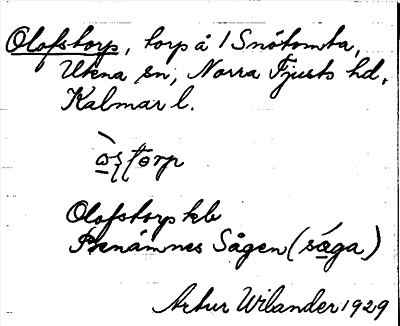 Olofstorp, torp å 1 Snötomta,
Ukna sn, Norra Tjusts hd,
Kalmar l.
Olofstorp kb
Benämnes Sågen (såga)
Artur Wilander 1929